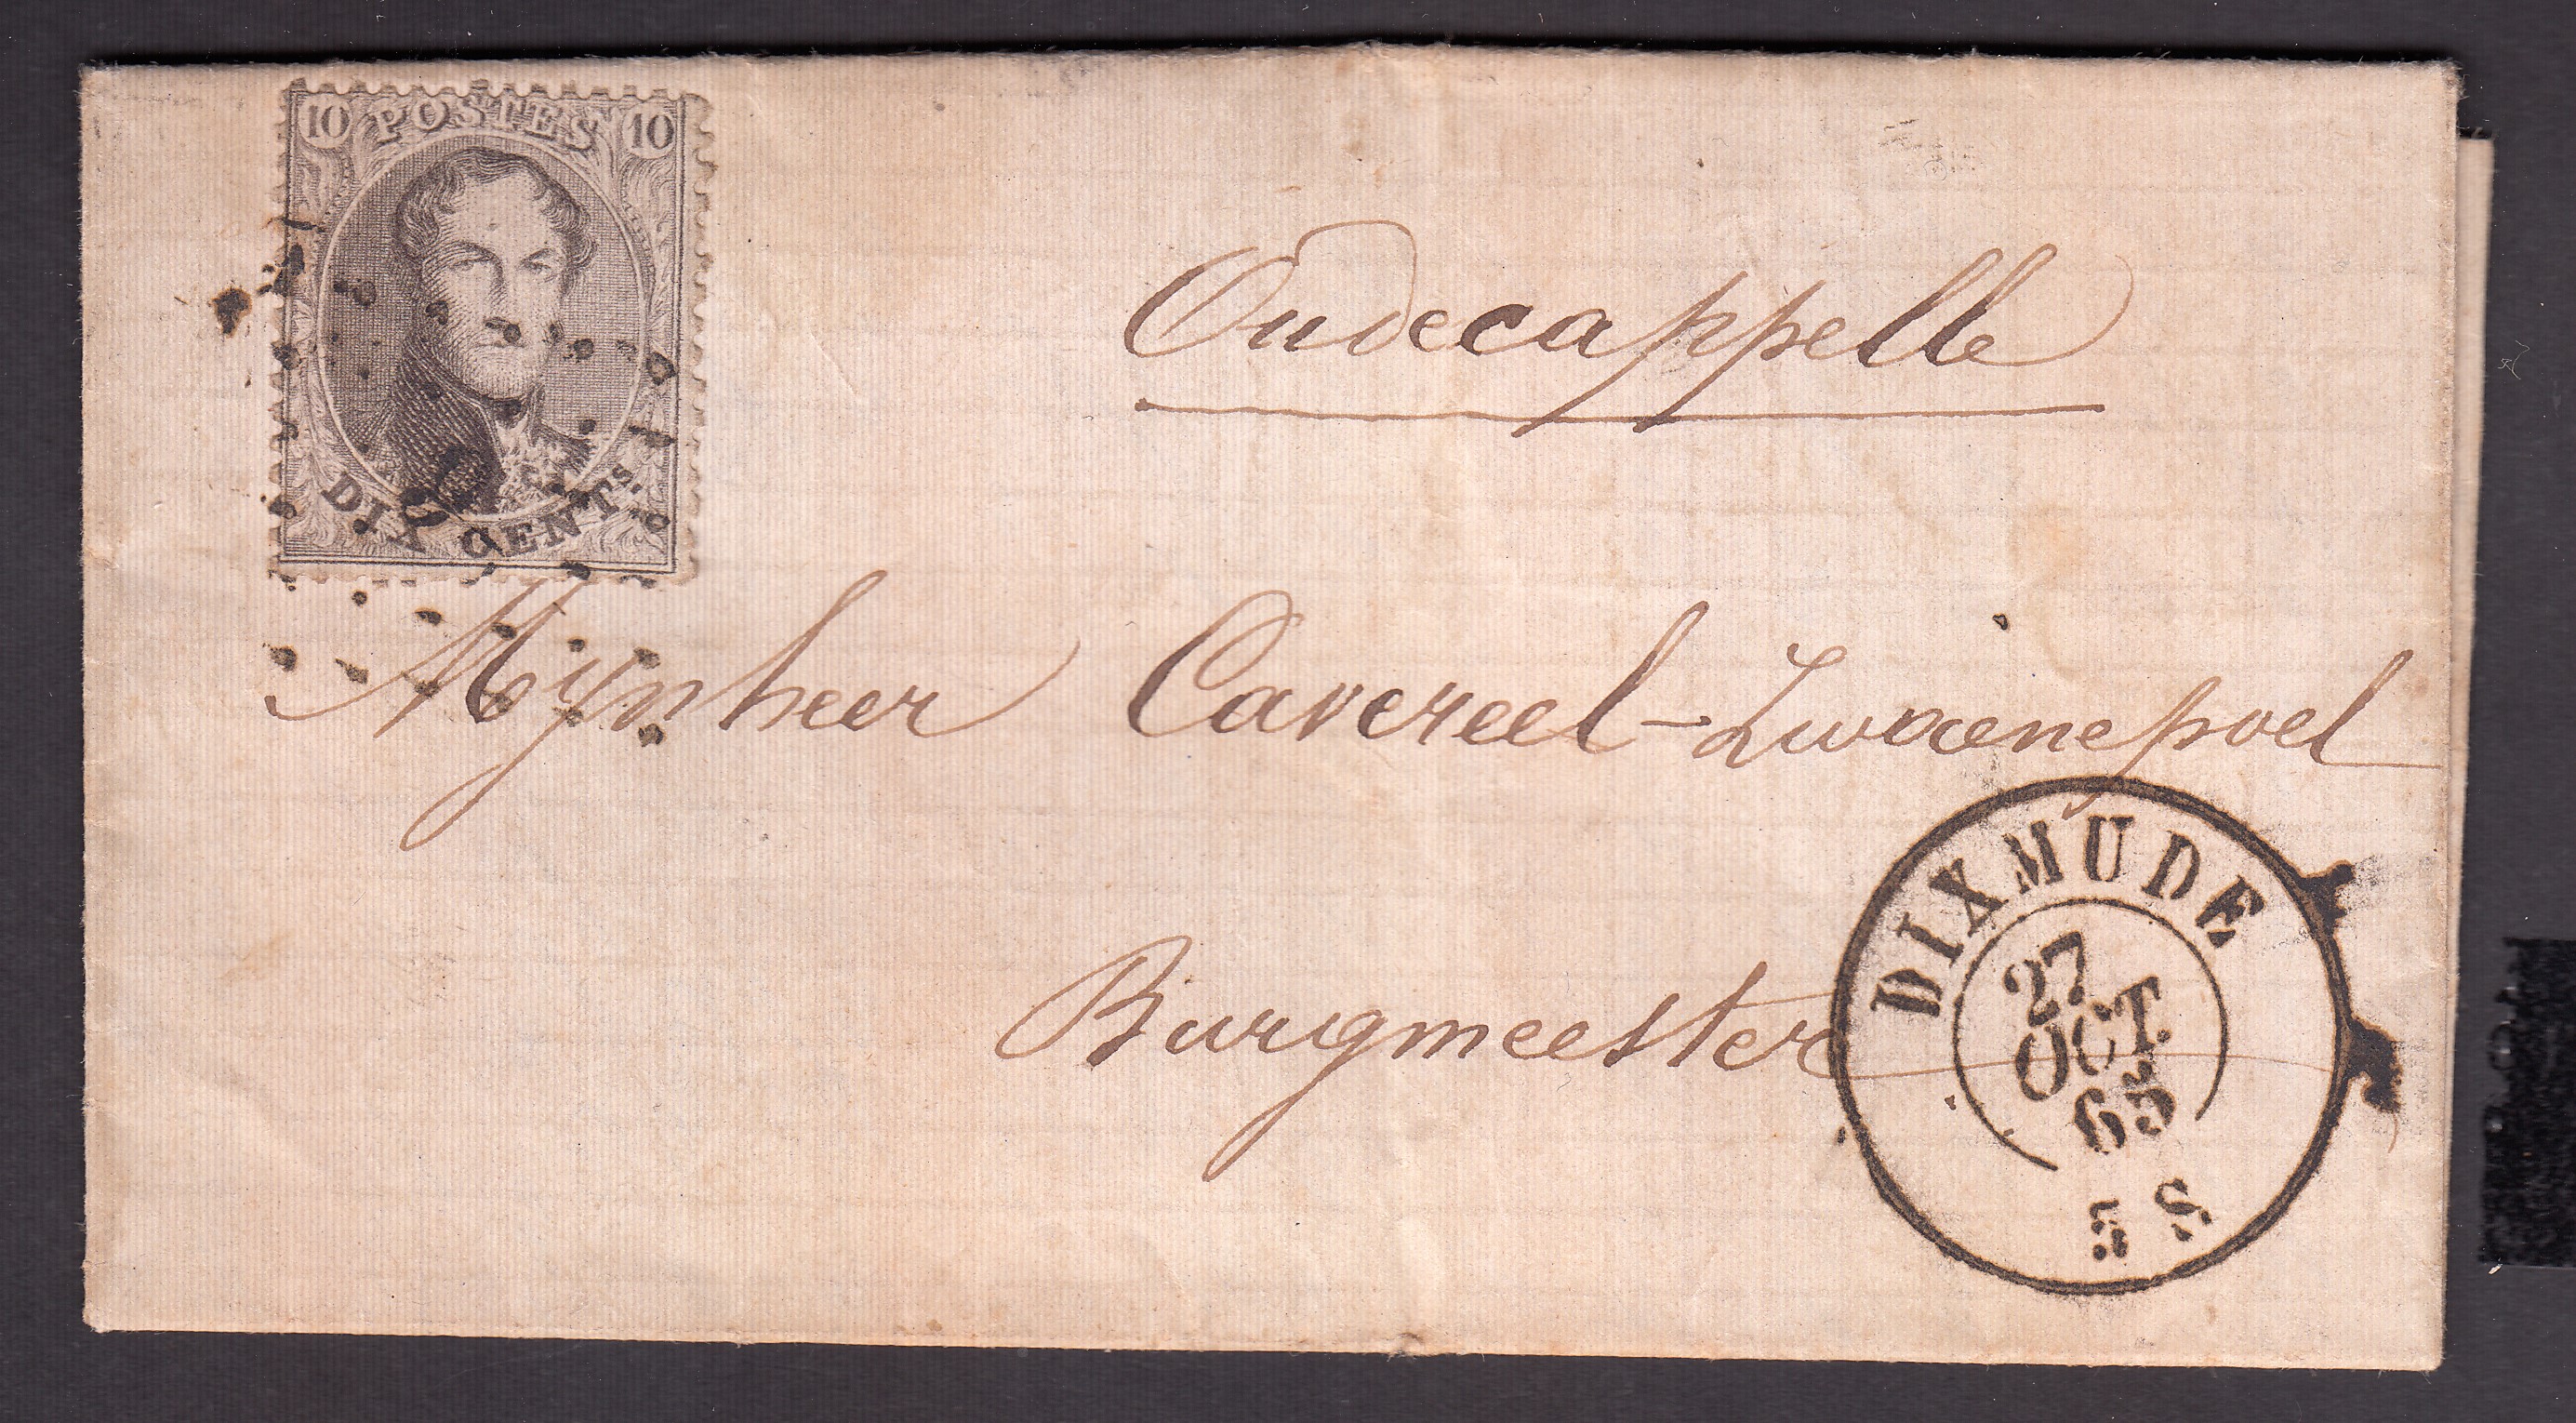 10 POSTES 10
DIX CENTS.
Oudecappelle
Mijnheer Cavereel-Zwaenepoel
Burgmeester
DIXMUDE
27
OCT.
65
5 S.